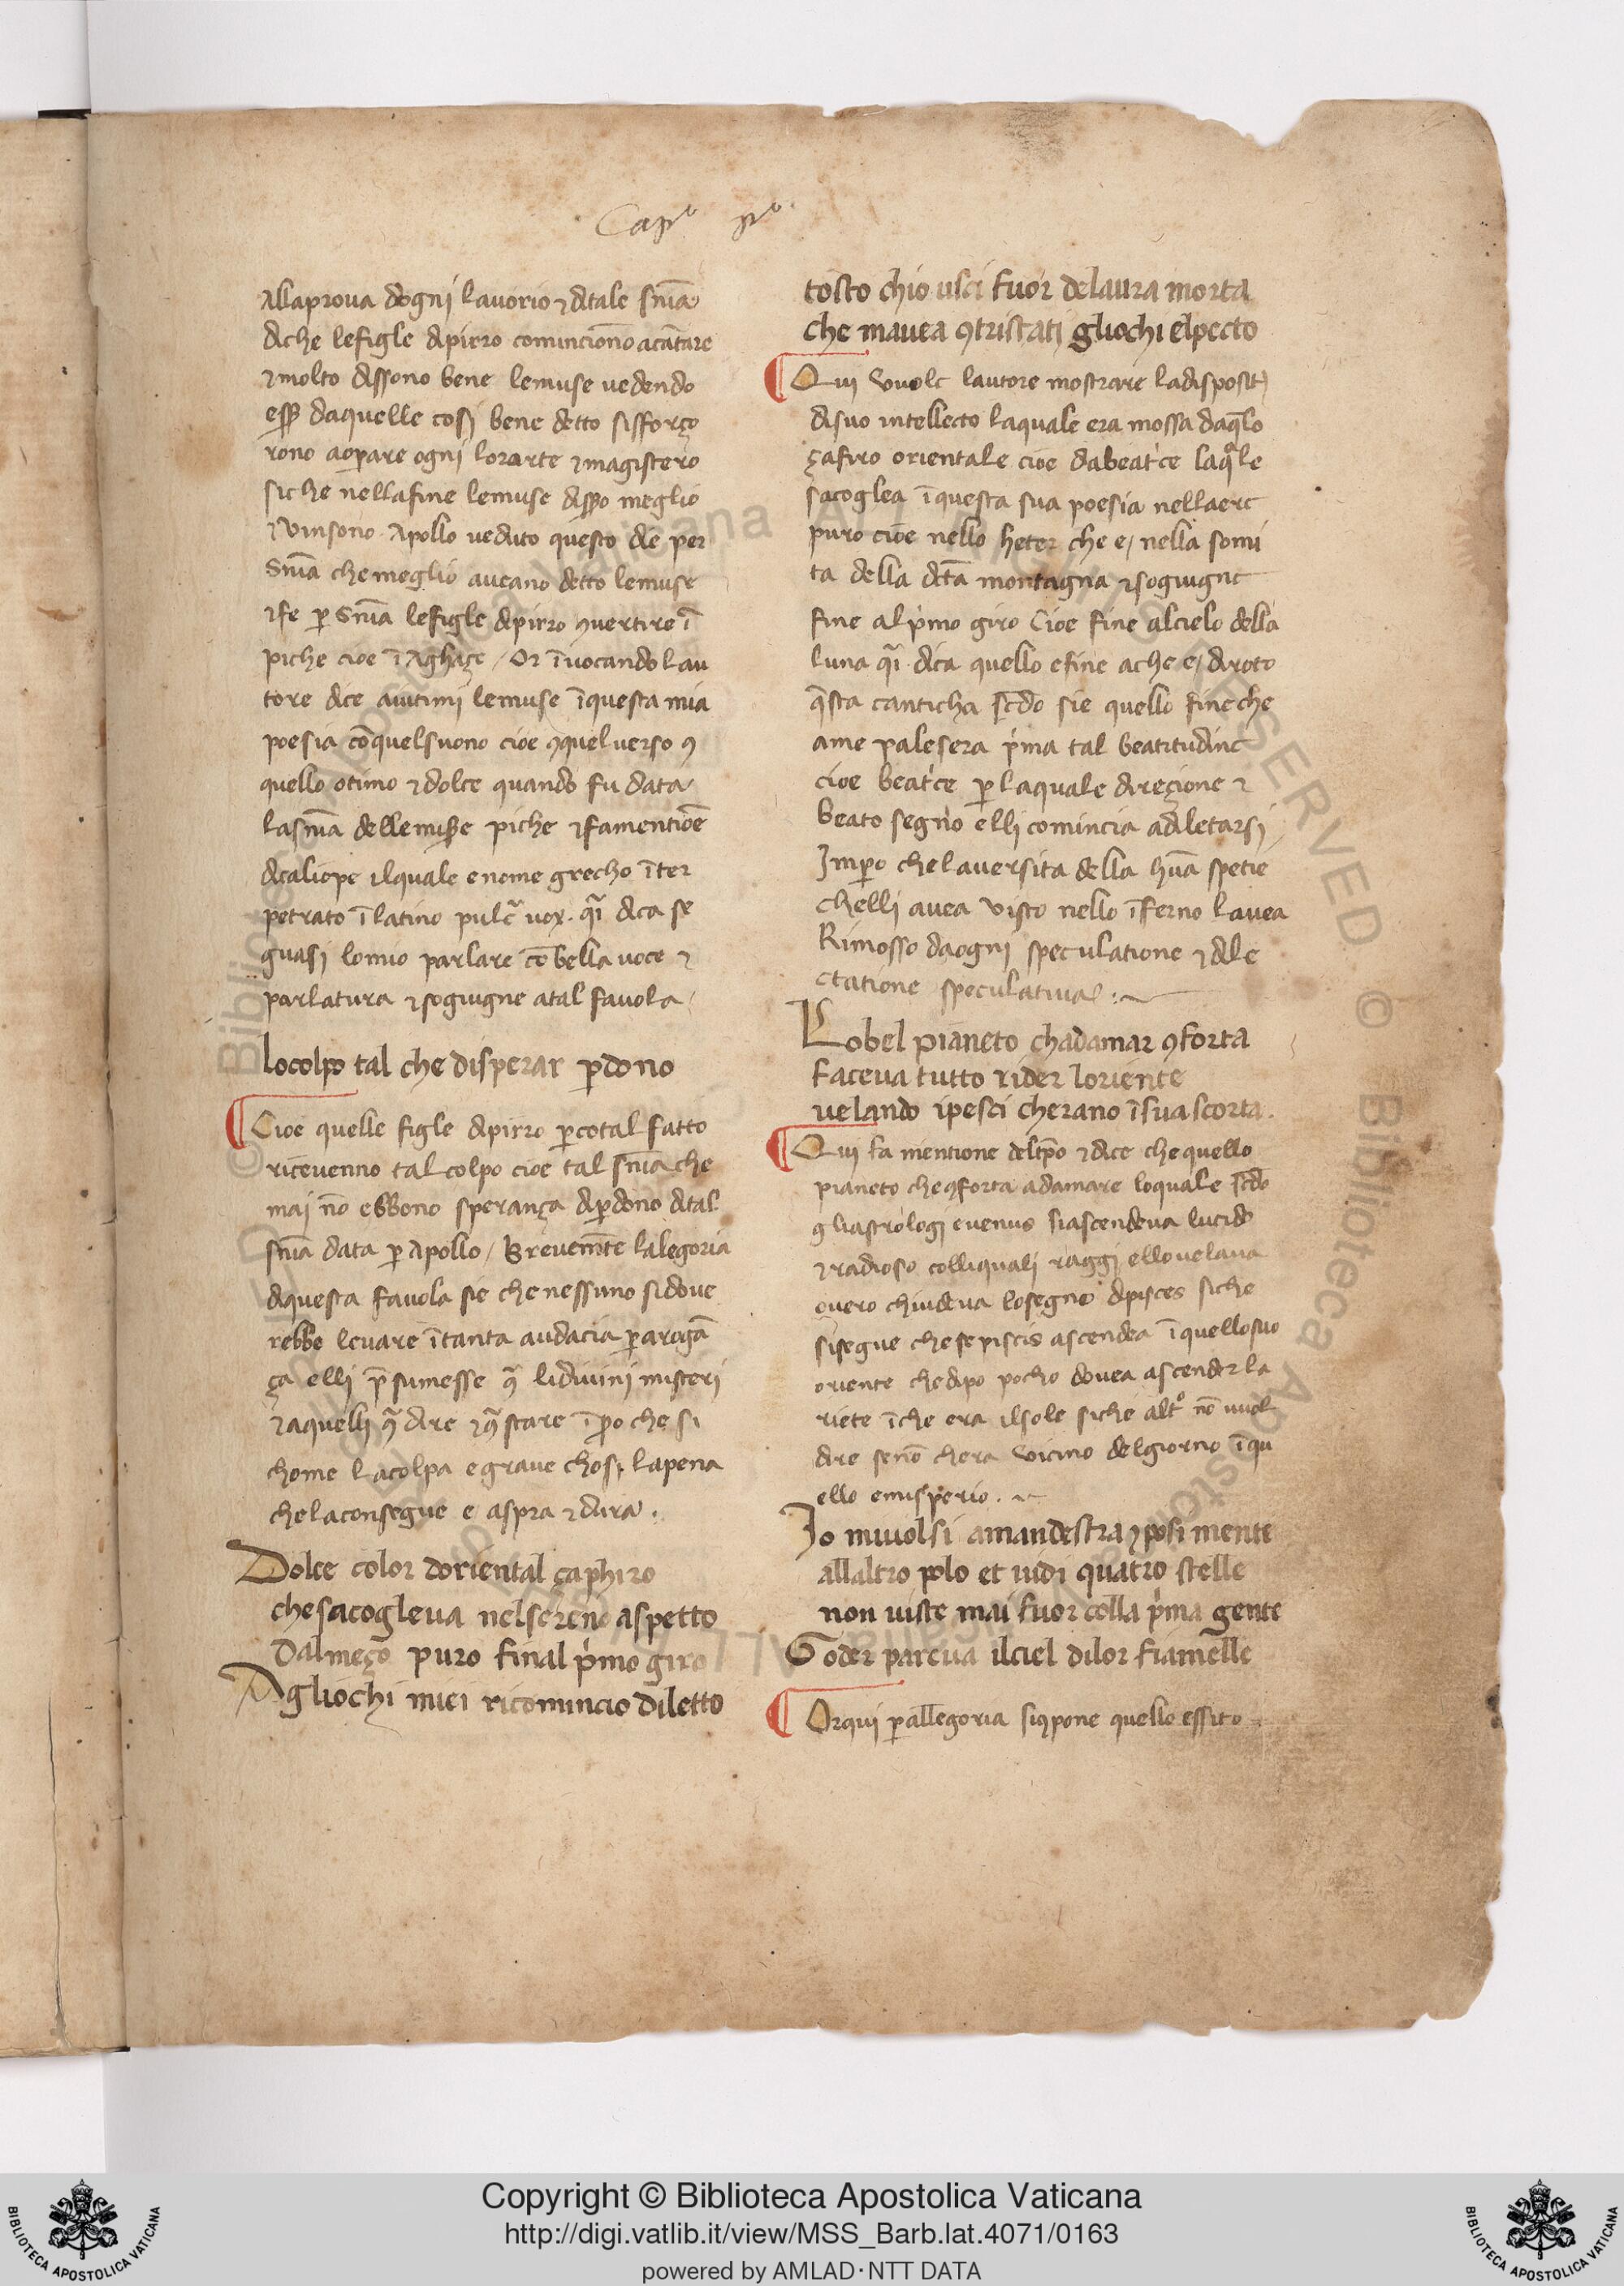 Cap.º pº
Allaprova dogni lavorio ⁊ ditale snīa
diche lefigle dipirro comīnciono acātare
⁊ molto dissono bene lemuse vedendo
essẽ daquelle cosi bene detto sisforço
rono aoꝑare ogni lorarte ⁊ magistero
siche nellafine lemuse disso meglio
⁊ vinsono. Apollo veduto questo die per
snīa chemeglio aveano detto lemuse
⁊ fe ꝑ snīa lefigle dipirro ꝯvertire ī
piche cioe ī Aghaçe / Or īvocando lau
tore dice aiutimi lemuse īquesta mia
poesia cōquelsuono cioe ꝯquelverso ꝯ
quello otimo ⁊ dolce quando fu data
lasnīa dellemisse piche ⁊ famentiōe
dicaliope ilquale enome grecho īter
petrato ī latino pulcˉ vox. qˉi dica se
guasi lomio parlare cōbella voce ⁊
parlatura ⁊ sogiugne atal favola
locolpo tal che disperar ꝑdono
Cioe quelle figle dipirro ꝑcotal fatto
ricevenno tal colpo cioe tal snīa che
mai nō ebbono sperança diꝑdono dital
snīa data ꝑ Apollo / Brevemēte lalegoria
diquesta favola sie che nessuno sidove
rebbe levare ītanta audacia ꝑarogā
ça elli p̄sumesse ꝯˉ lidivini misteri
⁊ aquelli ꝯˉdire ⁊ ꝯˉstare īꝑo che si
chome lacolpa egrave chosi lapena
chelaconsegue e aspra ⁊ dura.
Dolce color doriental çaphiro
chesacogleva nelsereno aspetto
Dalmeço puro finalpˈmo giro
Agliochi miei ricomincio diletto
tosto chio usci fuor delaura morta
che mavea ꝯtristati gliochi elpecto
Qui vuole lautore mostrare ladisposit
disuo intellecto laquale era mossa daq̄lo
çafiro orientale cioe dabeatˈce laqˉle
sacoglea īquesta sua poesia nellaere
puro cioe nello heter che e / nella somi
ta della dc̄ta montagna ⁊ sogiugne
fine alpˈmo giro Cioe fine alcielo della
luna qˉi dica quello efine ache e / diroto
q̄sta canticha sc̄do sie quello fineche
ame palesera pˈma tal beatitudine
cioe beatˈce ꝑ laquale diregione ⁊
beato segno elli comincia adiletarsi
Imꝑo chelaversita della hūa spetie
chelli avea visto nello īferno lavea
Rimosso daogni speculatione ⁊ dile
ctatione speculativa.
Lobel pianeto chadamar ꝯforta
Faceva tutto rider loriente
velando ipesci cherano īsua scorta.
Qui fa mentione deltp̄o ⁊ dice chequello
pianeto cheꝯforta adamare loquale sc̄do
gliastrologi evenus siascendeva lucido
⁊ radioso colliquali raggi ellovelava
overo chiudeva losegno dipisces siche
sisegue chesepiscis ascendea īquellosuo
oriente chedipo pocho dovea ascender la
riete īche era ilsole siche altº nō vuol
dire senō chera vicino delgiorno īqu
ello emisꝑerio.
Io mivolsi amandestra ⁊posi mente
allaltro polo et vidi quatro stelle
non viste mai fuor colla pˈma gente
Goder pareva ilciel dilor fiamelle
Orqui ꝑallegoria siꝯpone quello essito
Copyright © Biblioteca Apostolica Vaticana
http://digi.vatlib.it/view/MSS_Barb.lat.4071/0163
powered by AMLAD·NTT DATA